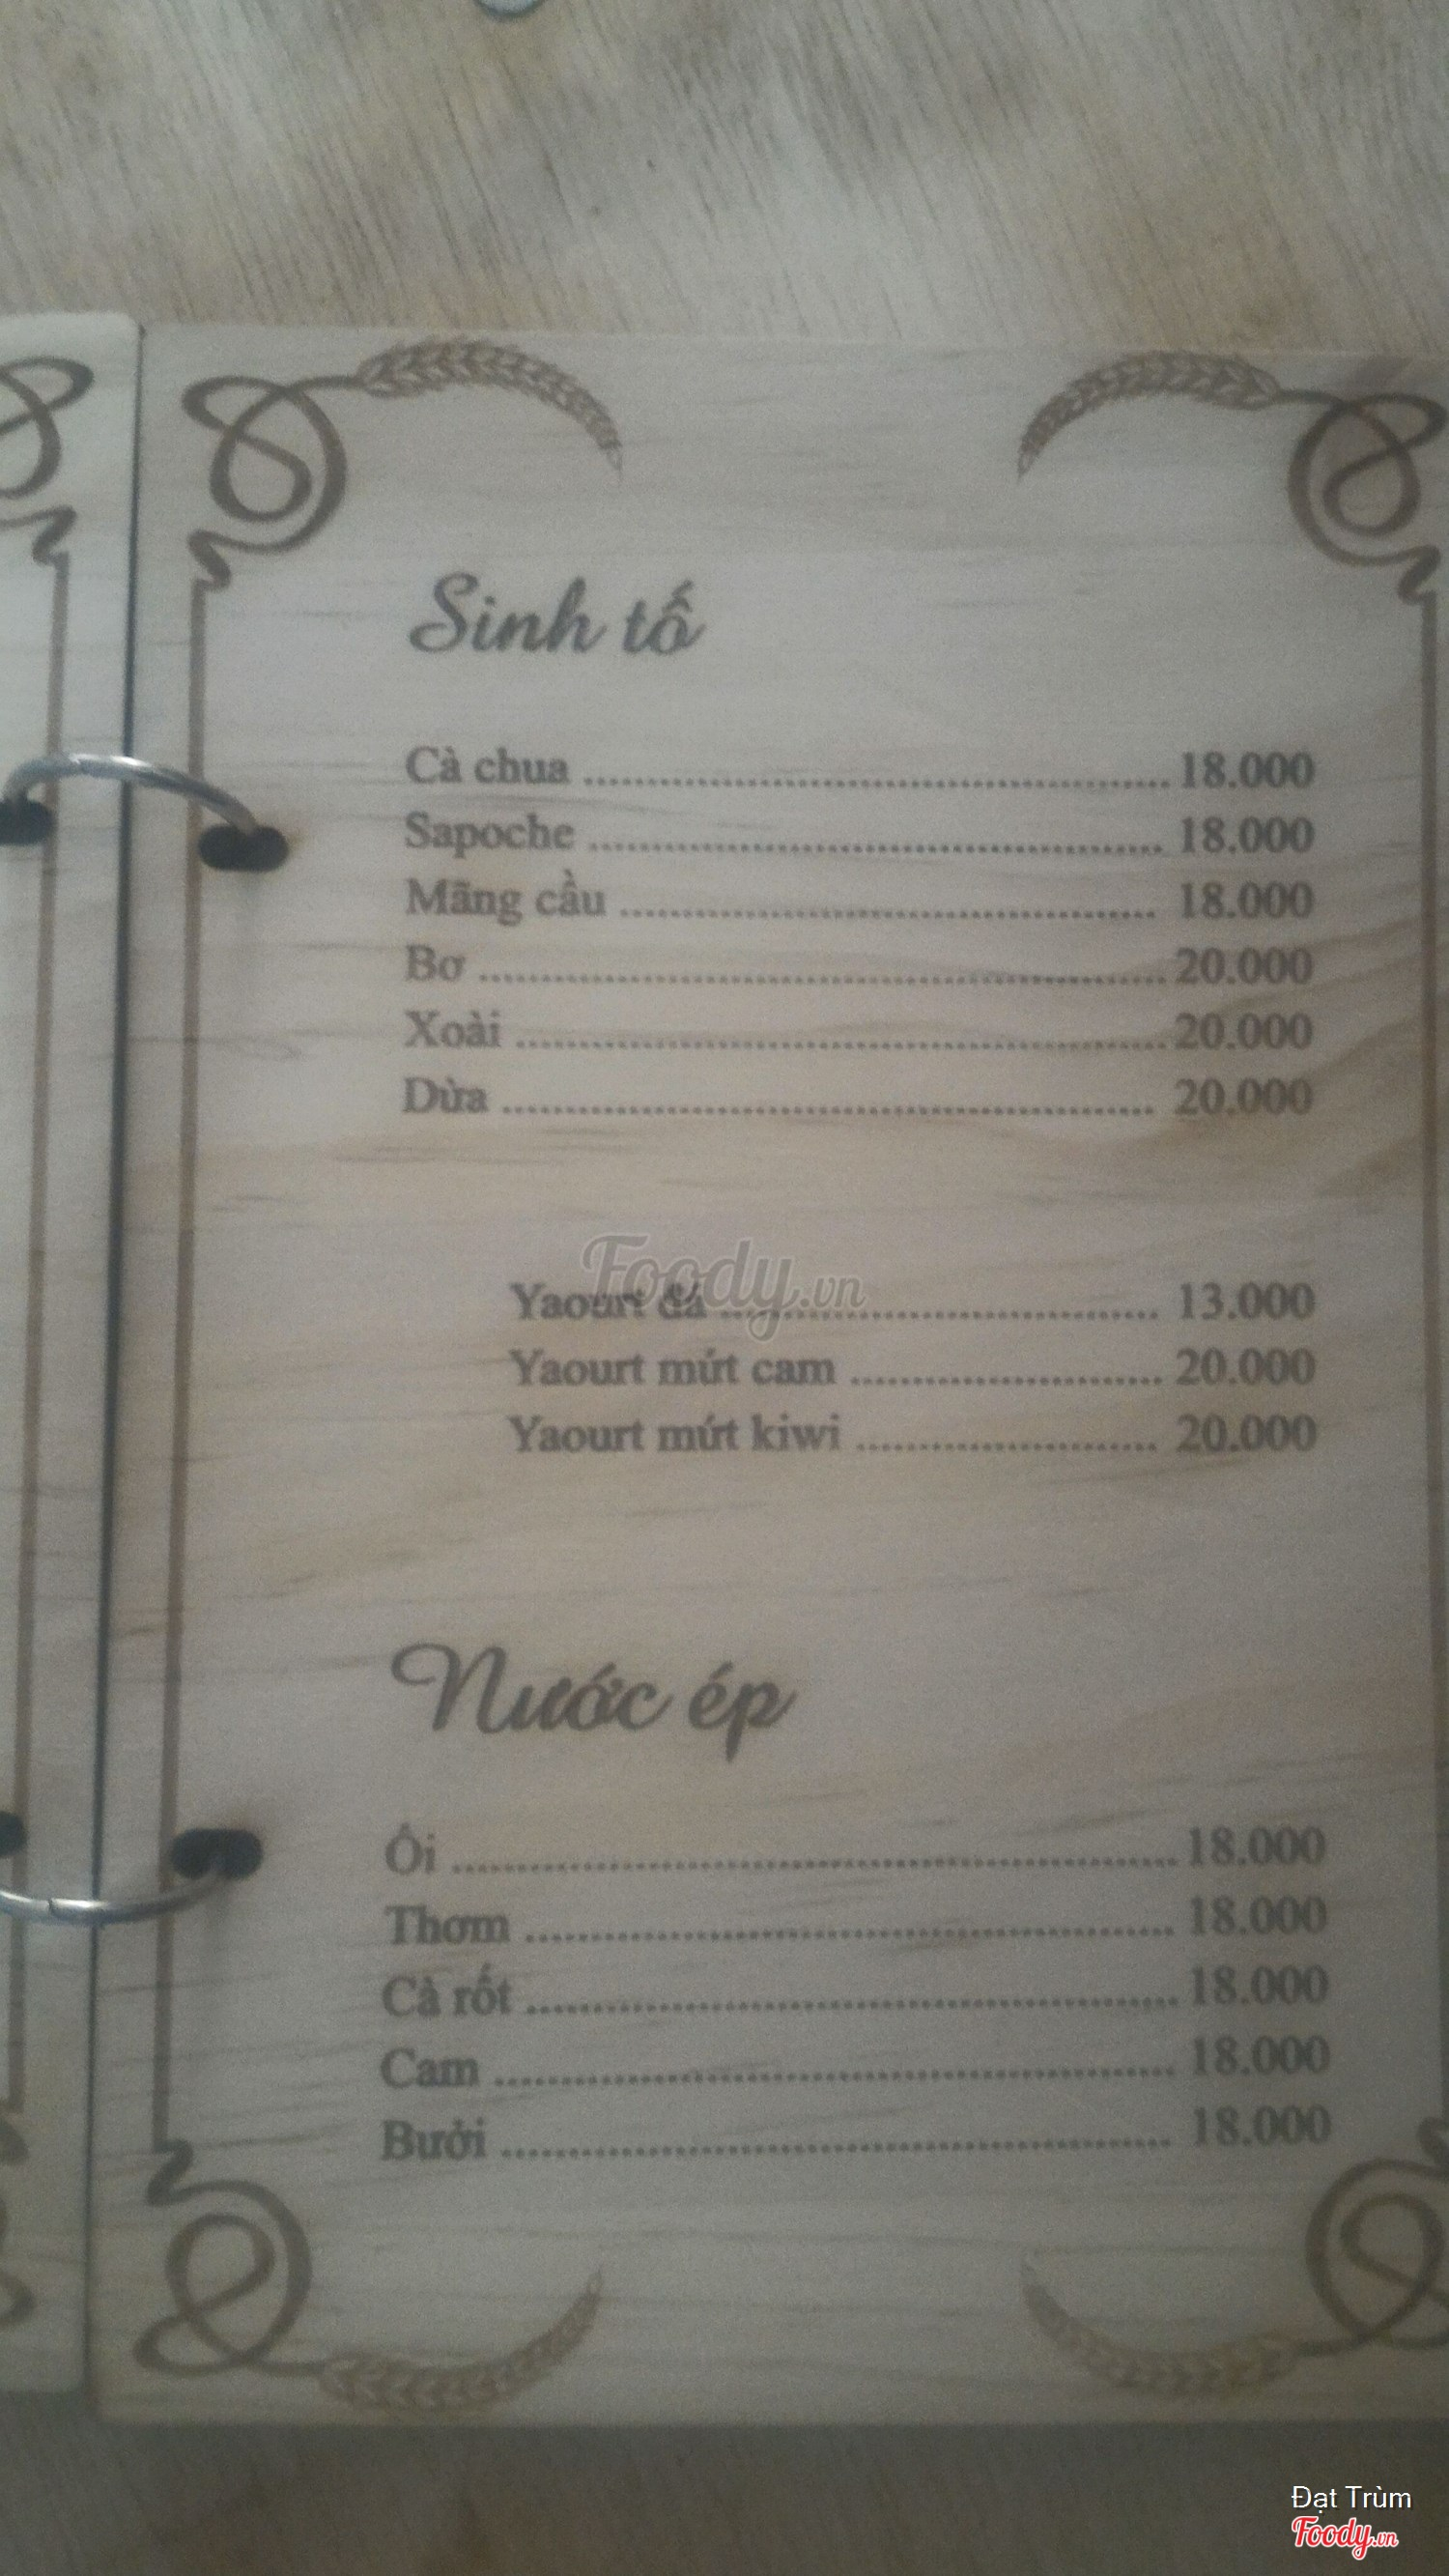 Sinh tố
Cà chua ........................................ 18.000
Sapoche ........................................ 18.000
Mãng cầu ........................................ 18.000
Bơ ........................................ 20.000
Xoài ........................................ 20.000
Dừa ........................................ 20.000
Foody.vn
Yaourt đá ........................................ 13.000
Yaourt mứt cam ........................................ 20.000
Yaourt mứt kiwi ........................................ 20.000
Nước ép
Ổi ........................................ 18.000
Thơm ........................................ 18.000
Cà rốt ........................................ 18.000
Cam ........................................ 18.000
Bưởi ........................................ 18.000
Đạt Trùm
Foody.vn